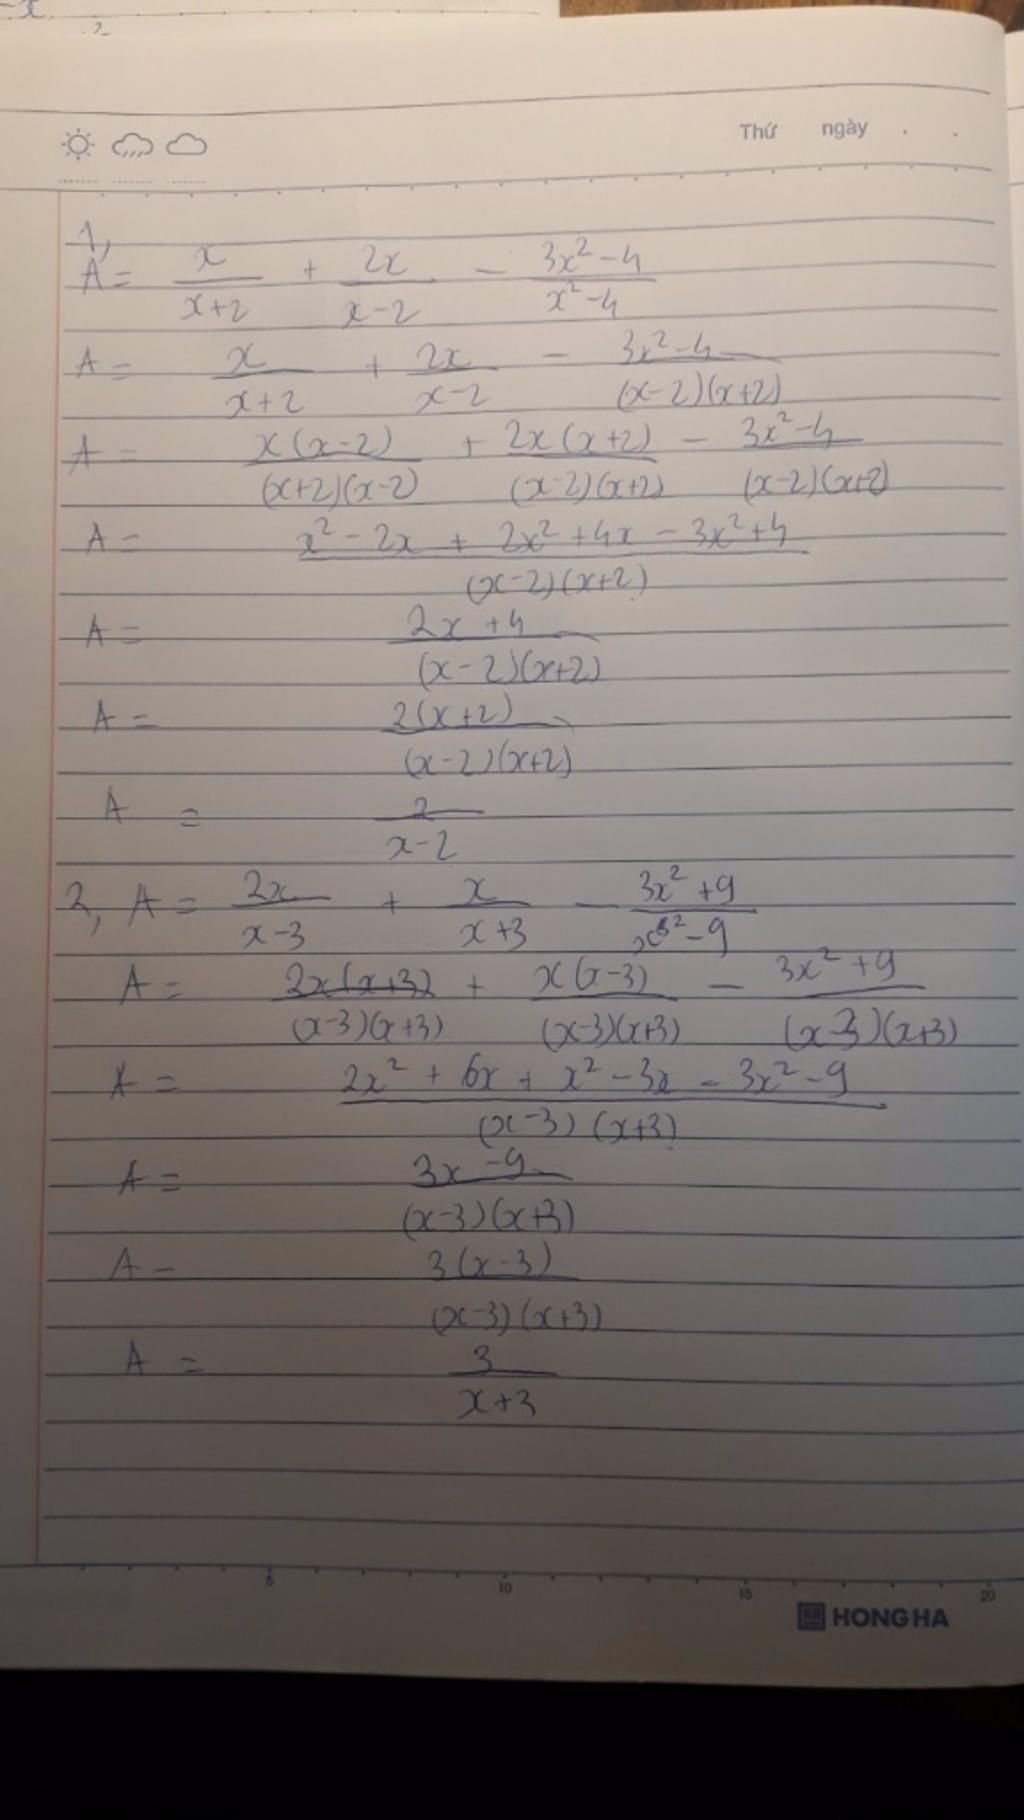 Thứ ngày . .
1,
A = x/(x+2) + 2x/(x-2) - (3x²-4)/(x²-4)
A = x/(x+2) + 2x/(x-2) - (3x²-4)/((x-2)(x+2))
A = x(x-2)/((x+2)(x-2)) + 2x(x+2)/((x-2)(x+2)) - (3x²-4)/((x-2)(x+2))
A = (x²-2x + 2x²+4x-3x²+4)/((x-2)(x+2))
A = (2x+4)/((x-2)(x+2))
A = 2(x+2)/((x-2)(x+2))
A = 2/(x-2)
2, A = 2x/(x-3) + x/(x+3) - (3x²+9)/(x²-9)
A = 2x(x+3)/((x-3)(x+3)) + x(x-3)/((x-3)(x+3)) - (3x²+9)/((x-3)(x+3))
A = (2x² + 6x + x²-3x - 3x²-9)/((x-3)(x+3))
A = (3x-9)/((x-3)(x+3))
A = 3(x-3)/((x-3)(x+3))
A = 3/(x+3)
5 10 15 20
HONG HA